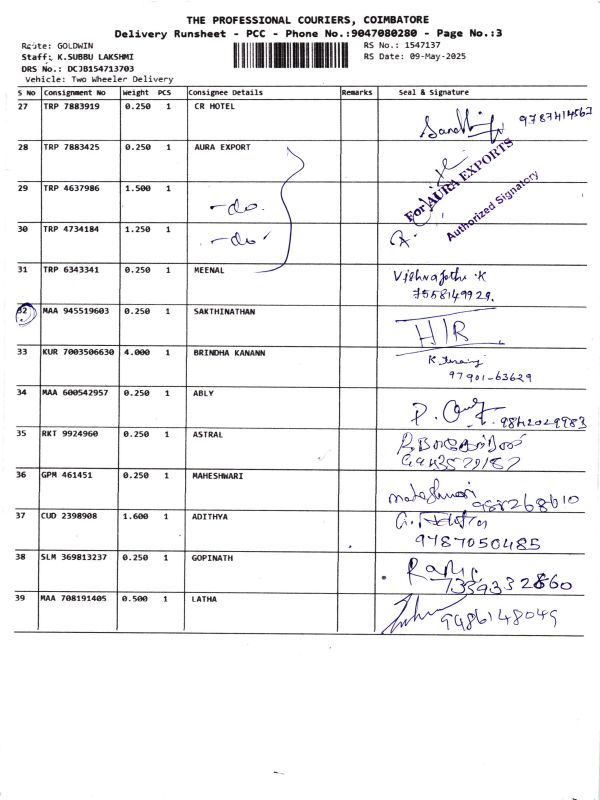 THE PROFESSIONAL COURIERS, COIMBATORE
Delivery Runsheet - PCC - Phone No.:9047080280 - Page No.:3
Route: GOLDWIN RS No.: 1547137
Staff: K.SUBBU LAKSHMI RS Date: 09-May-2025
DRS No.: DCJB154713703
Vehicle: Two Wheeler Delivery
S No Consignment No Weight PCS Consignee Details Remarks Seal & Signature
27 TRP 7883919 0.250 1 CR HOTEL
9787414562
28 TRP 7883425 0.250 1 AURA EXPORT
For AURA EXPORTS
Authorized Signatory
29 TRP 4637986 1.500 1
-do.
30 TRP 4734184 1.250 1
-do-
31 TRP 6343341 0.250 1 MEENAL
7558149929.
32 MAA 945519603 0.250 1 SAKTHINATHAN
H/R
33 KUR 7003506630 4.000 1 BRINDHA KANANN
97901-63629
34 MAA 600542957 0.250 1 ABLY
9842029983
35 RKT 9924960 0.250 1 ASTRAL
36 GPM 461451 0.250 1 MAHESHWARI
37 CUD 2398908 1.600 1 ADITHYA
9787050485
38 SLM 369813237 0.250 1 GOPINATH
7339332860
39 MAA 708191405 0.500 1 LATHA
9486148049